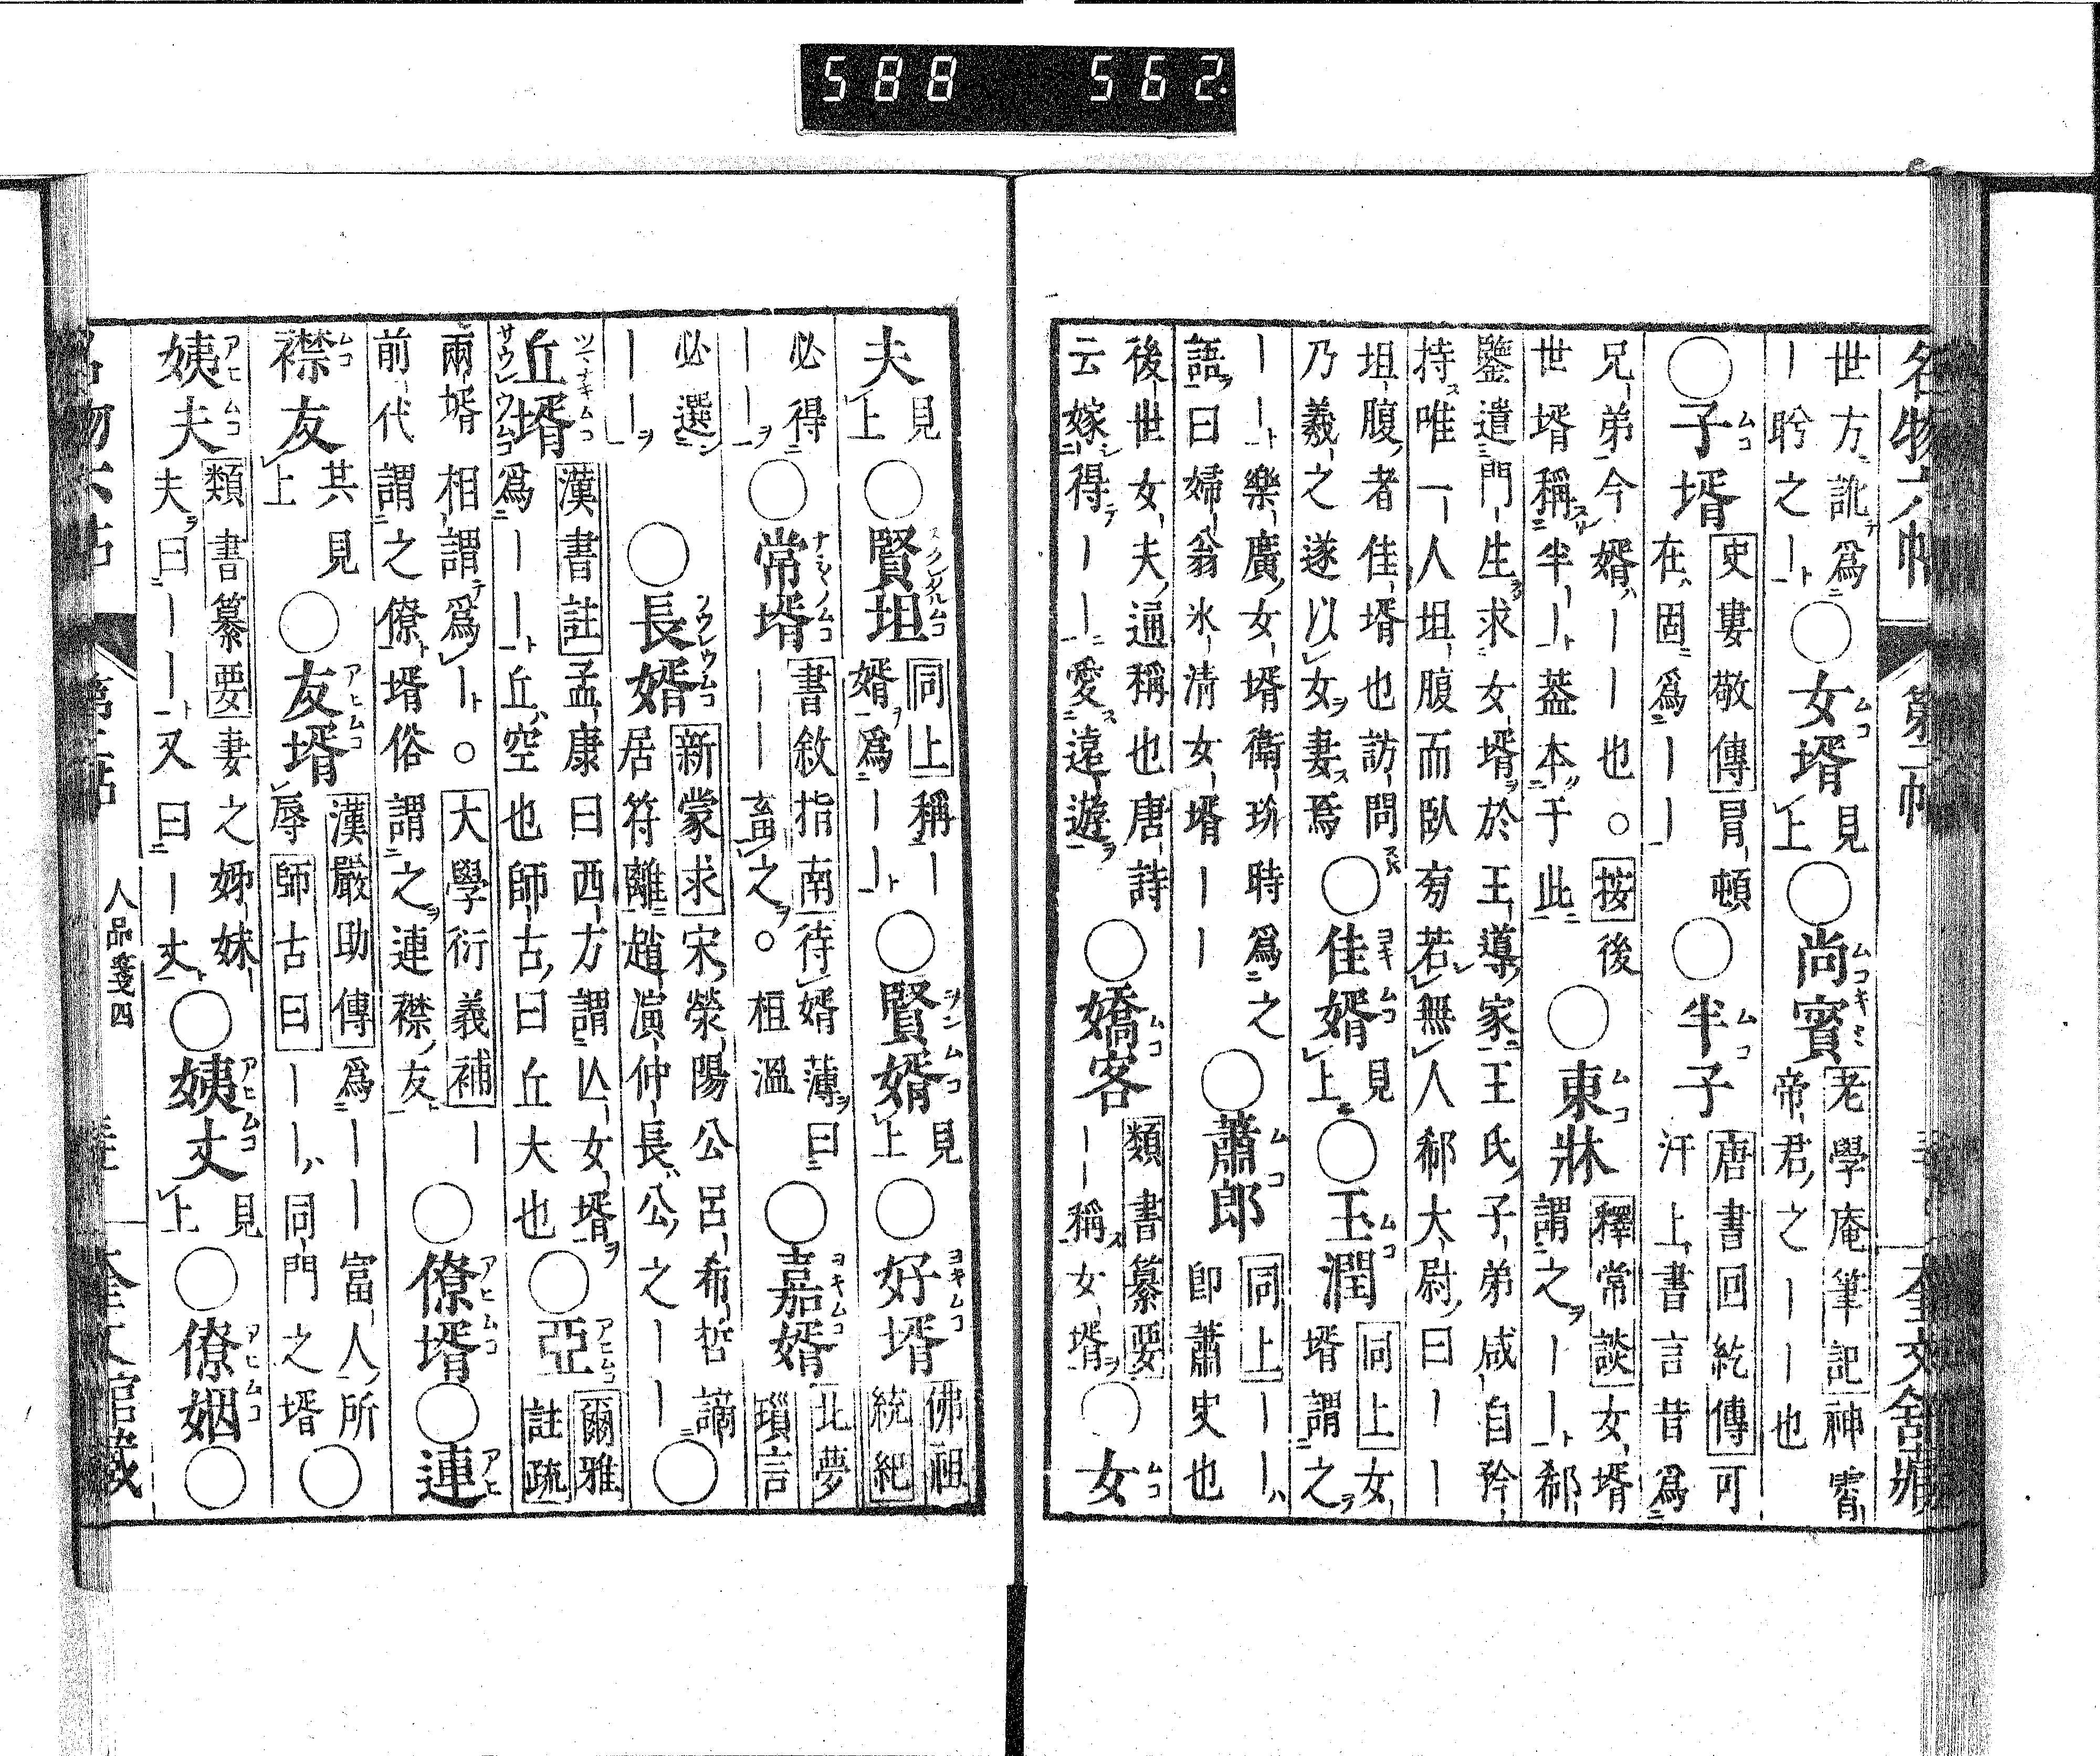 588 562
名物六帖 第二帖 奎文舘藏
世方訛爲
｜聆之｜
○女壻
見上
○尚賓
老學庵筆記神霄
帝君之｜｜也
○子壻
史婁敬傳冒頓
在固爲｜｜
○半子
唐書回紇傳可
汗上書言昔爲
兄弟今婿｜｜也○按後
世壻稱半｜蓋本于此
○東牀
釋常談女壻
謂之｜｜郗
鑒遣門生求女壻於王導家王氏子弟咸自矜
持唯一人坦腹而臥旁若無人郗大尉曰｜｜
坦腹者佳壻也訪問
乃羲之遂以女妻焉
○佳婿
見上
○玉潤
同上女
壻謂之
｜｜樂廣女壻衛玠時爲之
語曰婦翁氷清女壻｜｜
○蕭郎
同上｜｜
卽蕭史也
後世女夫通稱也唐詩
云嫁得｜｜愛遠遊
○嬌客
類書纂要
｜｜稱女壻
○女
夫
見上
○賢坦
同上稱｜
婿爲｜｜
○賢婿
見上
○好壻
佛祖
統紀
必得
｜｜
○常壻
書敘指南待婿薄曰
｜｜畜之。桓溫
○嘉婿
北夢
瑣言
必選
｜｜
○長婿
新蒙求宋滎陽公呂希哲謫
居符離趙演仲長公之｜｜
○
丘壻
漢書註孟康曰西方謂亾女壻
爲｜｜丘空也師古曰丘大也
○亞
爾雅
註疏
兩壻相謂爲｜○大學衍義補｜
前代謂之僚壻俗謂之連襟友
○僚壻
○連
襟友
共見
上
○友壻
漢嚴助傳爲｜｜富人所
辱師古曰｜｜同門之壻
○
姨夫
類書纂要妻之姊妹
夫曰｜｜又曰｜丈
○姨丈
見上
○僚姻
○
人品箋四